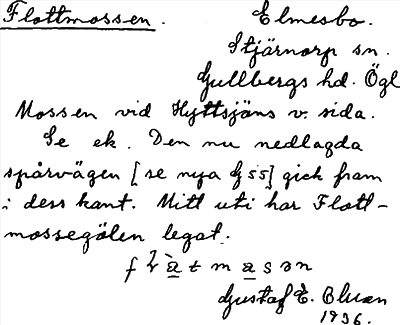 Flottmossen. Elmesbo.
Stjärnorp sn.
Gullbergs hd. Ögl
Mossen vid Hyttsjäns v. sida.
Se ek. Den nu nedlagda
spårvägen [se nya G 55] gick fram
i dess kant. Mitt uti har Flott-
mossegölen legat.
Gustaf E. Bluan
1936.